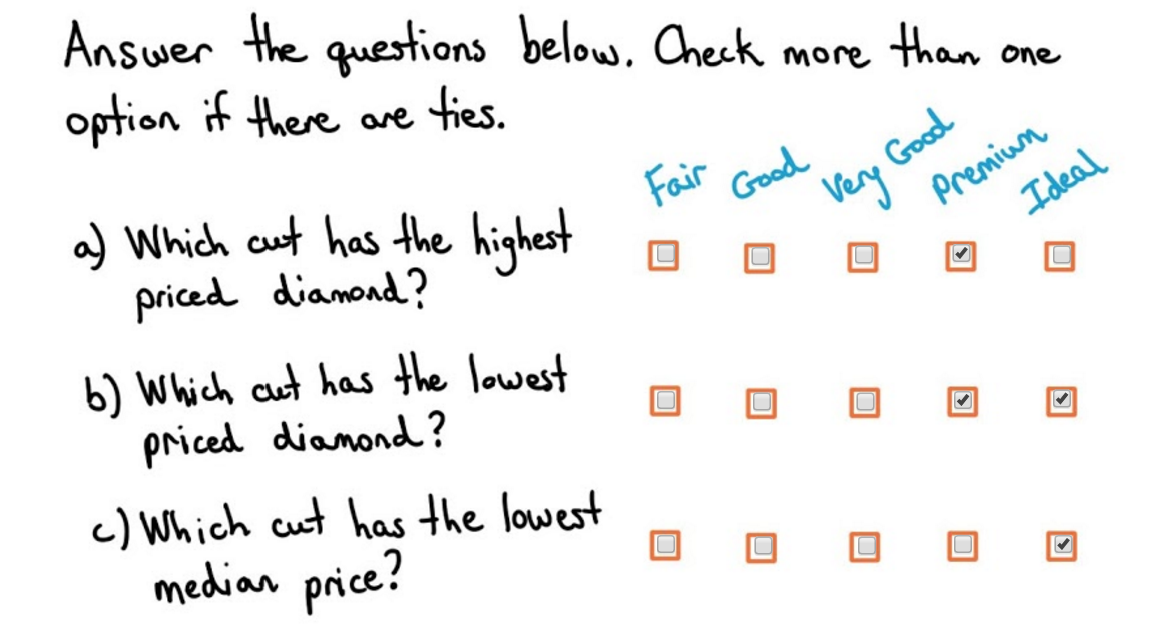 Answer the questions below. Check more than one
option if there are ties.
Fair Good Very Good Premium Ideal
a) Which cut has the highest
priced diamond?
b) Which cut has the lowest
priced diamond?
c) Which cut has the lowest
median price?